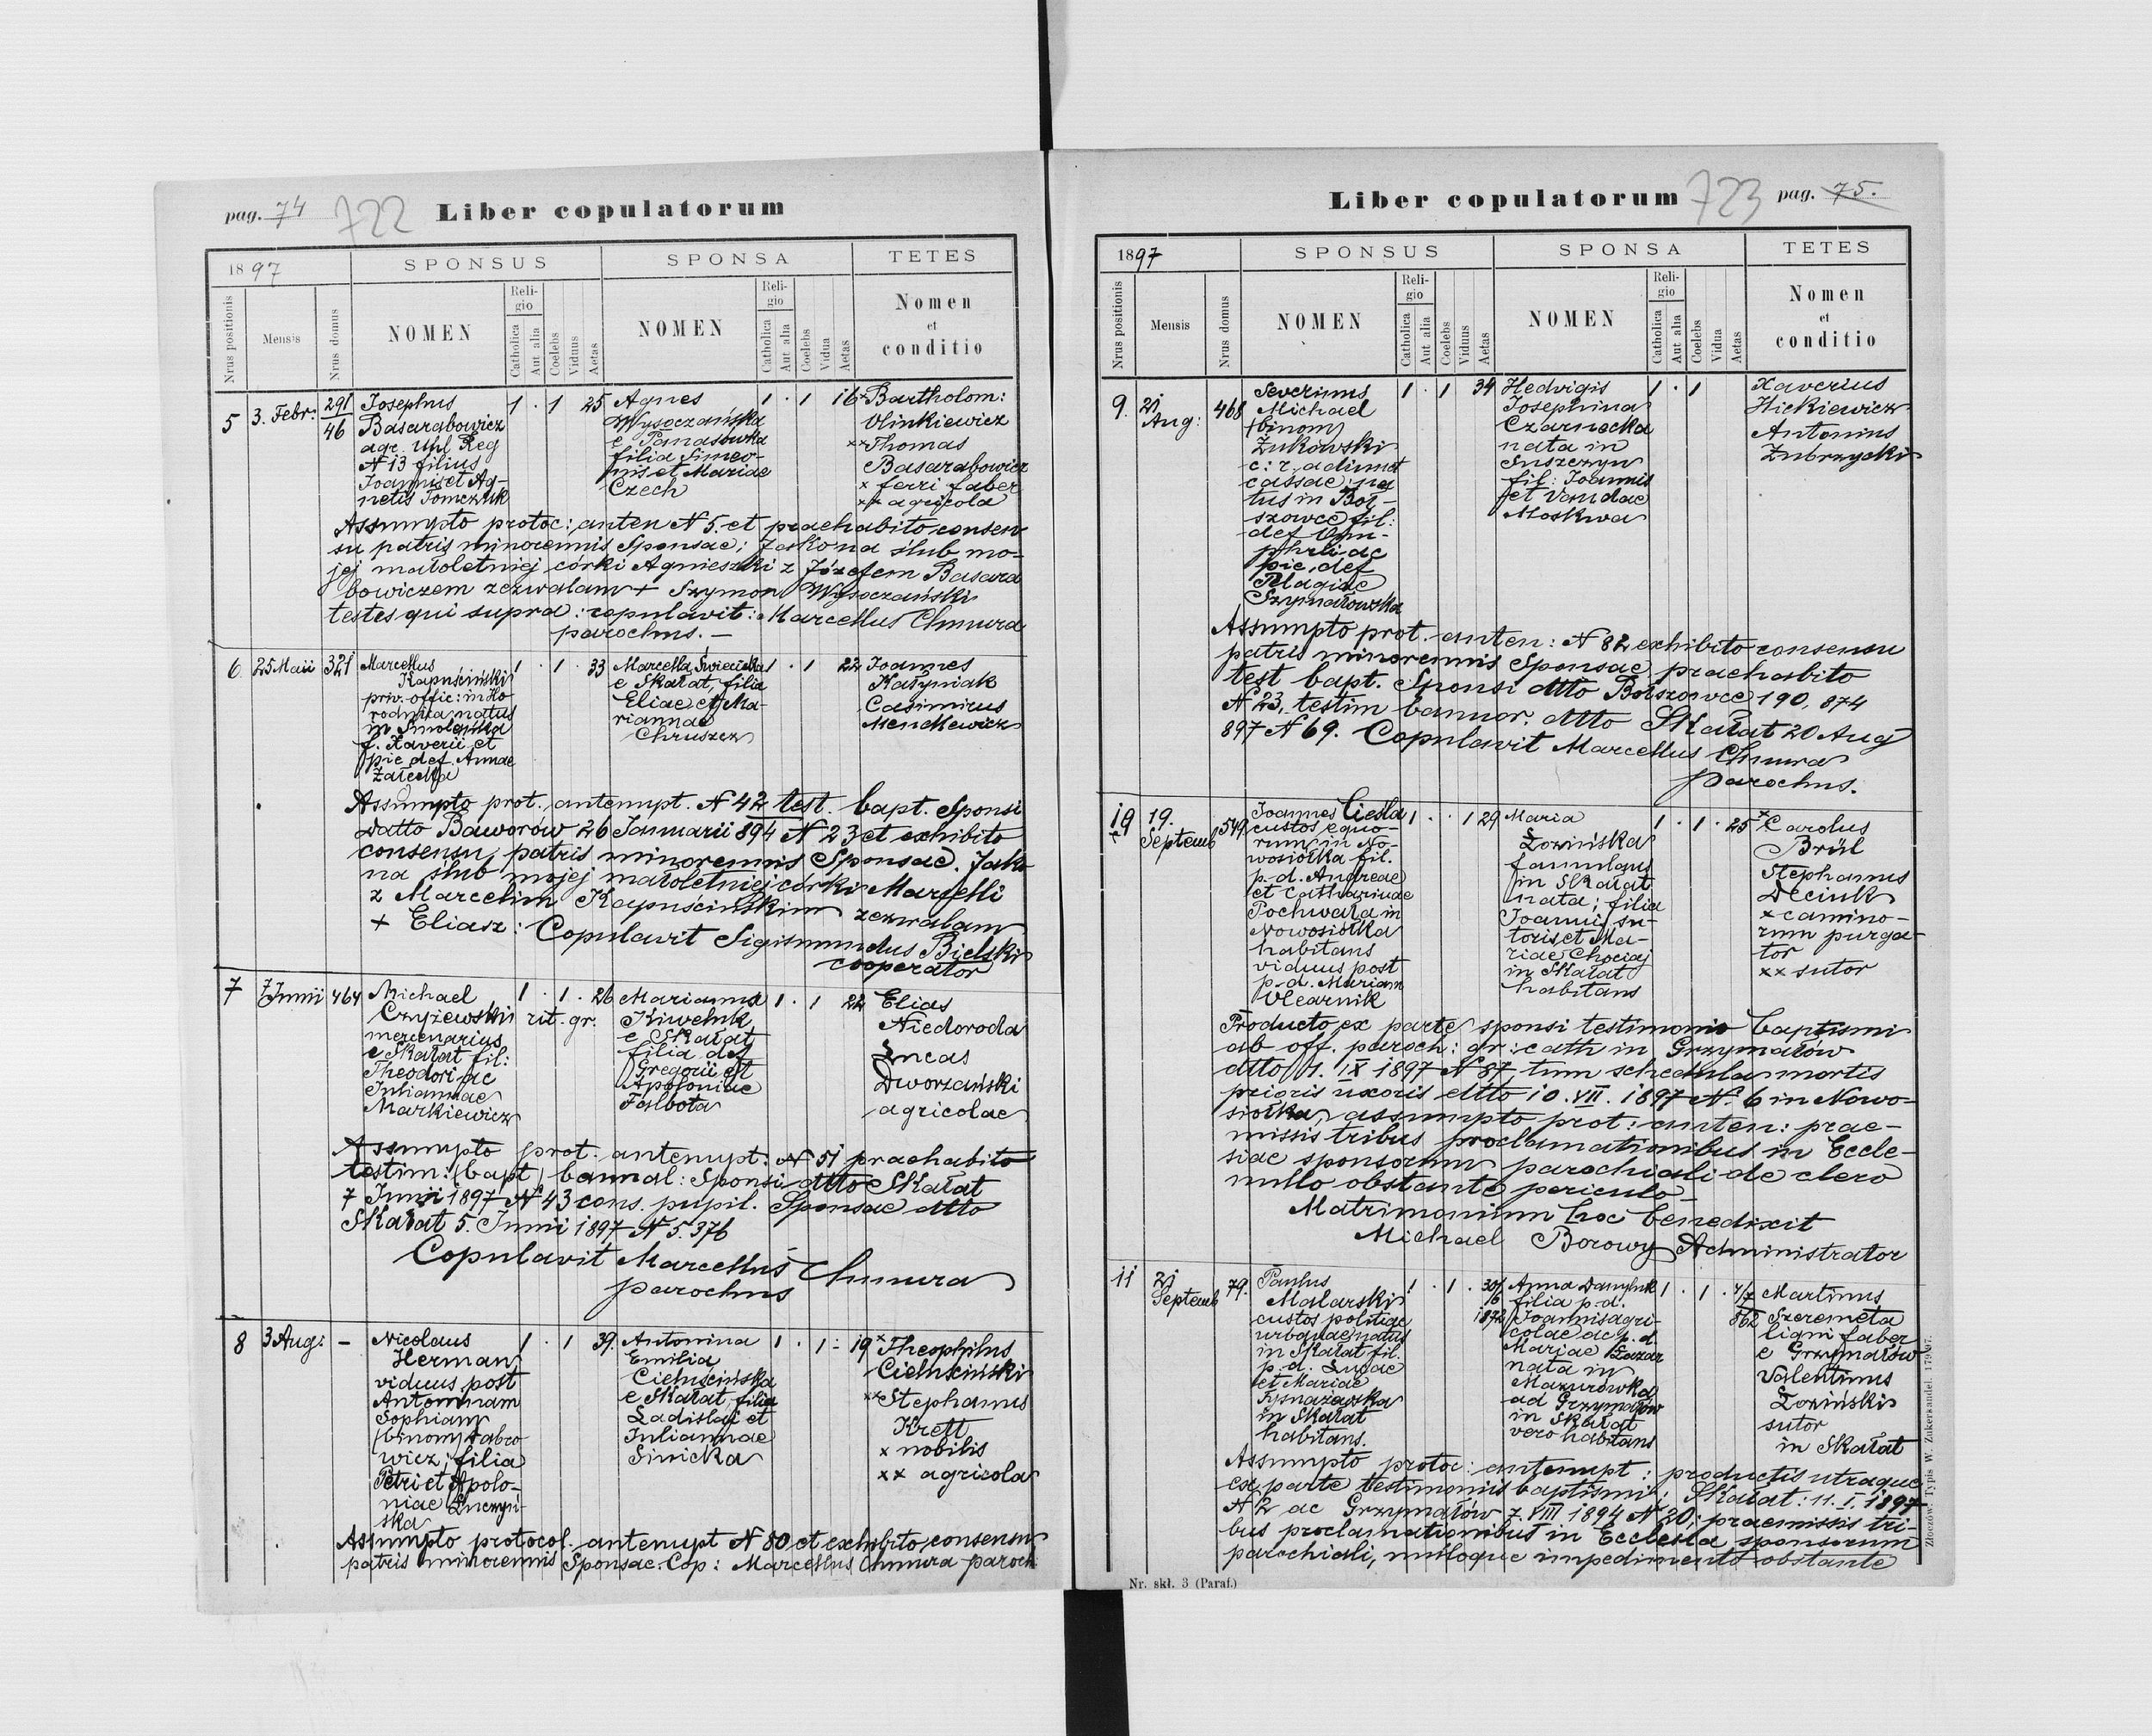 pag. 74
722
Liber copulatorum
1897
SPONSUS
SPONSA
TETES
Nrus positionis
Mensis
Nrus domus
NOMEN
Reli-
gio
Catholica
Aut alia
Coelebs
Viduus
Aetas
NOMEN
Reli-
gio
Catholica
Aut alia
Coelebs
Vidua
Aetas
Nomen
et
conditio
5
3. Febr:
291
46
Josephus
Basarabowicz
agr. Uhl Reg
N 13 filius
Joannis et Ag-
netis Tomczuk
1 · 1 25
Agnes
Wysoczańska
e Panasówka
filia Simeo-
nis et Mariae
Czech
1 · 1 16
× Bartholom:
Olinkiewicz
×× Thomas
Basarabowicz
× ferri faber
×× agricola
Assumpto protoc: anten N 5. et praehabito consen
su patris minorennis Sponsae; Jako na ślub mo-
jej małoletniej córki Agnieszki z Józefem Basara
bowiczem zezwalam + Szymon Wysoczański
testes qui supra: copulavit: Marcellus Chmura
parochus. —
6
25 Maii
321
Marcellus
Kapuściński
priv. offic: in Ho
rodnica natus
in Smolanka
f. Xaverii et
pie def. Annae
Załecka
1 · 1 · 33
Marcella Świecicka
e Skałat, filia
Eliae et Ma-
riannae
Chruszcz
1 · 1 22
Joannes
Kałyniak
Casimirus
Mendlewicz
Assumpto prot. antenupt. N 42 test. bapt. Sponsi
Datto Baworów 26 Januarii 894 N 23 et exhibito
consensu patris minorennis Sponsae. Jako
na ślub mojej małoletniej córki Marcelli
z Marcelim Kapuścińskim zezwalam
+ Eliasz: Copulavit Sigismundus Bielski
cooperator
7
7 Junii
464
Michael
Czyżewski
mercenarius
e Skałat fil:
Theodori ac
Juliannae
Markiewicz
1 · 1 · 26
rit. gr.
Marianna
Kiweluk
e Skałat
filia def
Gregorii et
Apoloniae
Falbota
1 · 1 22
Elias
Niedoroda
Lucas
Dworzański
agricolae
Assumpto prot. antenupt. N 51 praehabito
testim: (bapt) bannal: Sponsi dtto Skałat
7 Junii 1897 N 43 cons. pupil. Sponsae dtto
Skałat 5. Junii 1897 N 5.376
Copulavit Marcellus Chmura
parochus
8
3 Aug:
—
Nicolaus
Herman
viduus post
Antoninam
Sophiam
(binom) Dabro
wicz; filia
Petri et Apolo-
niae Luczyń-
ska
1 · 1 39.
Antonina
Emilia
Cieluścińska
e Skałat, filia
Ladislai et
Juliannae
Sinicka
1 · 1 : 19
× Theophilus
Cieluściński
×× Stephanus
Krett
× nobilis
×× agricola
Assumpto protocol. antenupt N 80 et exhibito consensu
patris minorennis Sponsae. Cop: Marcellus Chmura paroch
Liber copulatorum
723
pag. 75.
1897
SPONSUS
SPONSA
TETES
Nrus positionis
Mensis
Nrus domus
NOMEN
Reli-
gio
Catholica
Aut alia
Coelebs
Viduus
Aetas
NOMEN
Reli-
gio
Catholica
Aut alia
Coelebs
Vidua
Aetas
Nomen
et
conditio
9.
21
Aug:
468
Severinus
Michael
(binom)
Żukowski
c: r. adiunct
cassae; na
tus in Bol-
szowce fil:
def Onu-
phrli ac
pie def
Pelagiae
Szymałowska
1 · 1 34
Hedvigis
Josephina
Czarnecka
nata in
Suszczyn
fil: Joannis
et Vandae
Moskwa
1 · 1
Xaverius
Hickiewicz
Antonius
Zubrzycki
Assumpto prot. anten: N 82 exhibito consensu
patris minorennis Sponsae, praehabito
test bapt. Sponsi dtto Bolszowce 190, 874
N 23, testim bannor. dtto Skałat 20 Aug
897 N 69. Copulavit Marcellus Chmura
parochus.
10
19.
Septemb
549
Joannes Cieśla
custos equo-
rum in No-
wosiółka fil.
p. d. Andreae
et Catharinae
Pochwała in
Nowosiółka
habitans
viduus post
p. d. Mariam
Olearnik
1 · · 1 29
Maria
Łozińska
famulans
in Skałat
nata; filia
Joannis su-
toris et Ma-
riae Chociaj
in Skałat
habitans
1 · 1 · 25
× Carolus
Brül
Stephanus
Deciuk
× camino-
rum purga-
tor
×× sutor
Producto ex parte sponsi testimonio baptismi
ab off. paroch: gr: cath in Grzymałów
dtto 1. IX 1897 N 87 tum schedula mortis
prioris uxoris dtto 10. VII. 1897 N. 6 in Nowo-
siółka, assumpto prot: anten: prae-
missis tribus proclamationibus in Eccle-
siae sponsorum parochiali de clero
nullo obstante periculo —
Matrimonium hoc benedixit
Michael Borowy Administrator
11
21
Septemb
79.
Paulus
Malarski
custos politiae
urbanae natus
in Skałat fil.
p. d. Lucae
et Mariae
in Skałat
habitans.
1 · 1 · 30/
6
1872
Anna Danyluk
filia p. d.
Joannis agri-
colae ac p. d.
Mariae Łazar
nata in
Mazurówka
ad Grzymałów
in Skałat
vero habitans
1 · 1 · 7/7
862
Martinus
Szeremeta
ligni faber
e Grzymałów
Valentinus
Łoziński
sutor
in Skałat
Assumpto protoc: antenupt: productis utraque
ex parte testimoniis baptismi: Skałat: 11. I. 1897
N 2 ac Grzymałów 7. VIII 1894 N 20; praemissis tri-
bus proclamationibus in Ecclesia sponsorum
parochiali, nulloque impedimento obstante
Nr. skł. 3 (Paraf.)
Złoczów. Typis W. Zukerkandel.